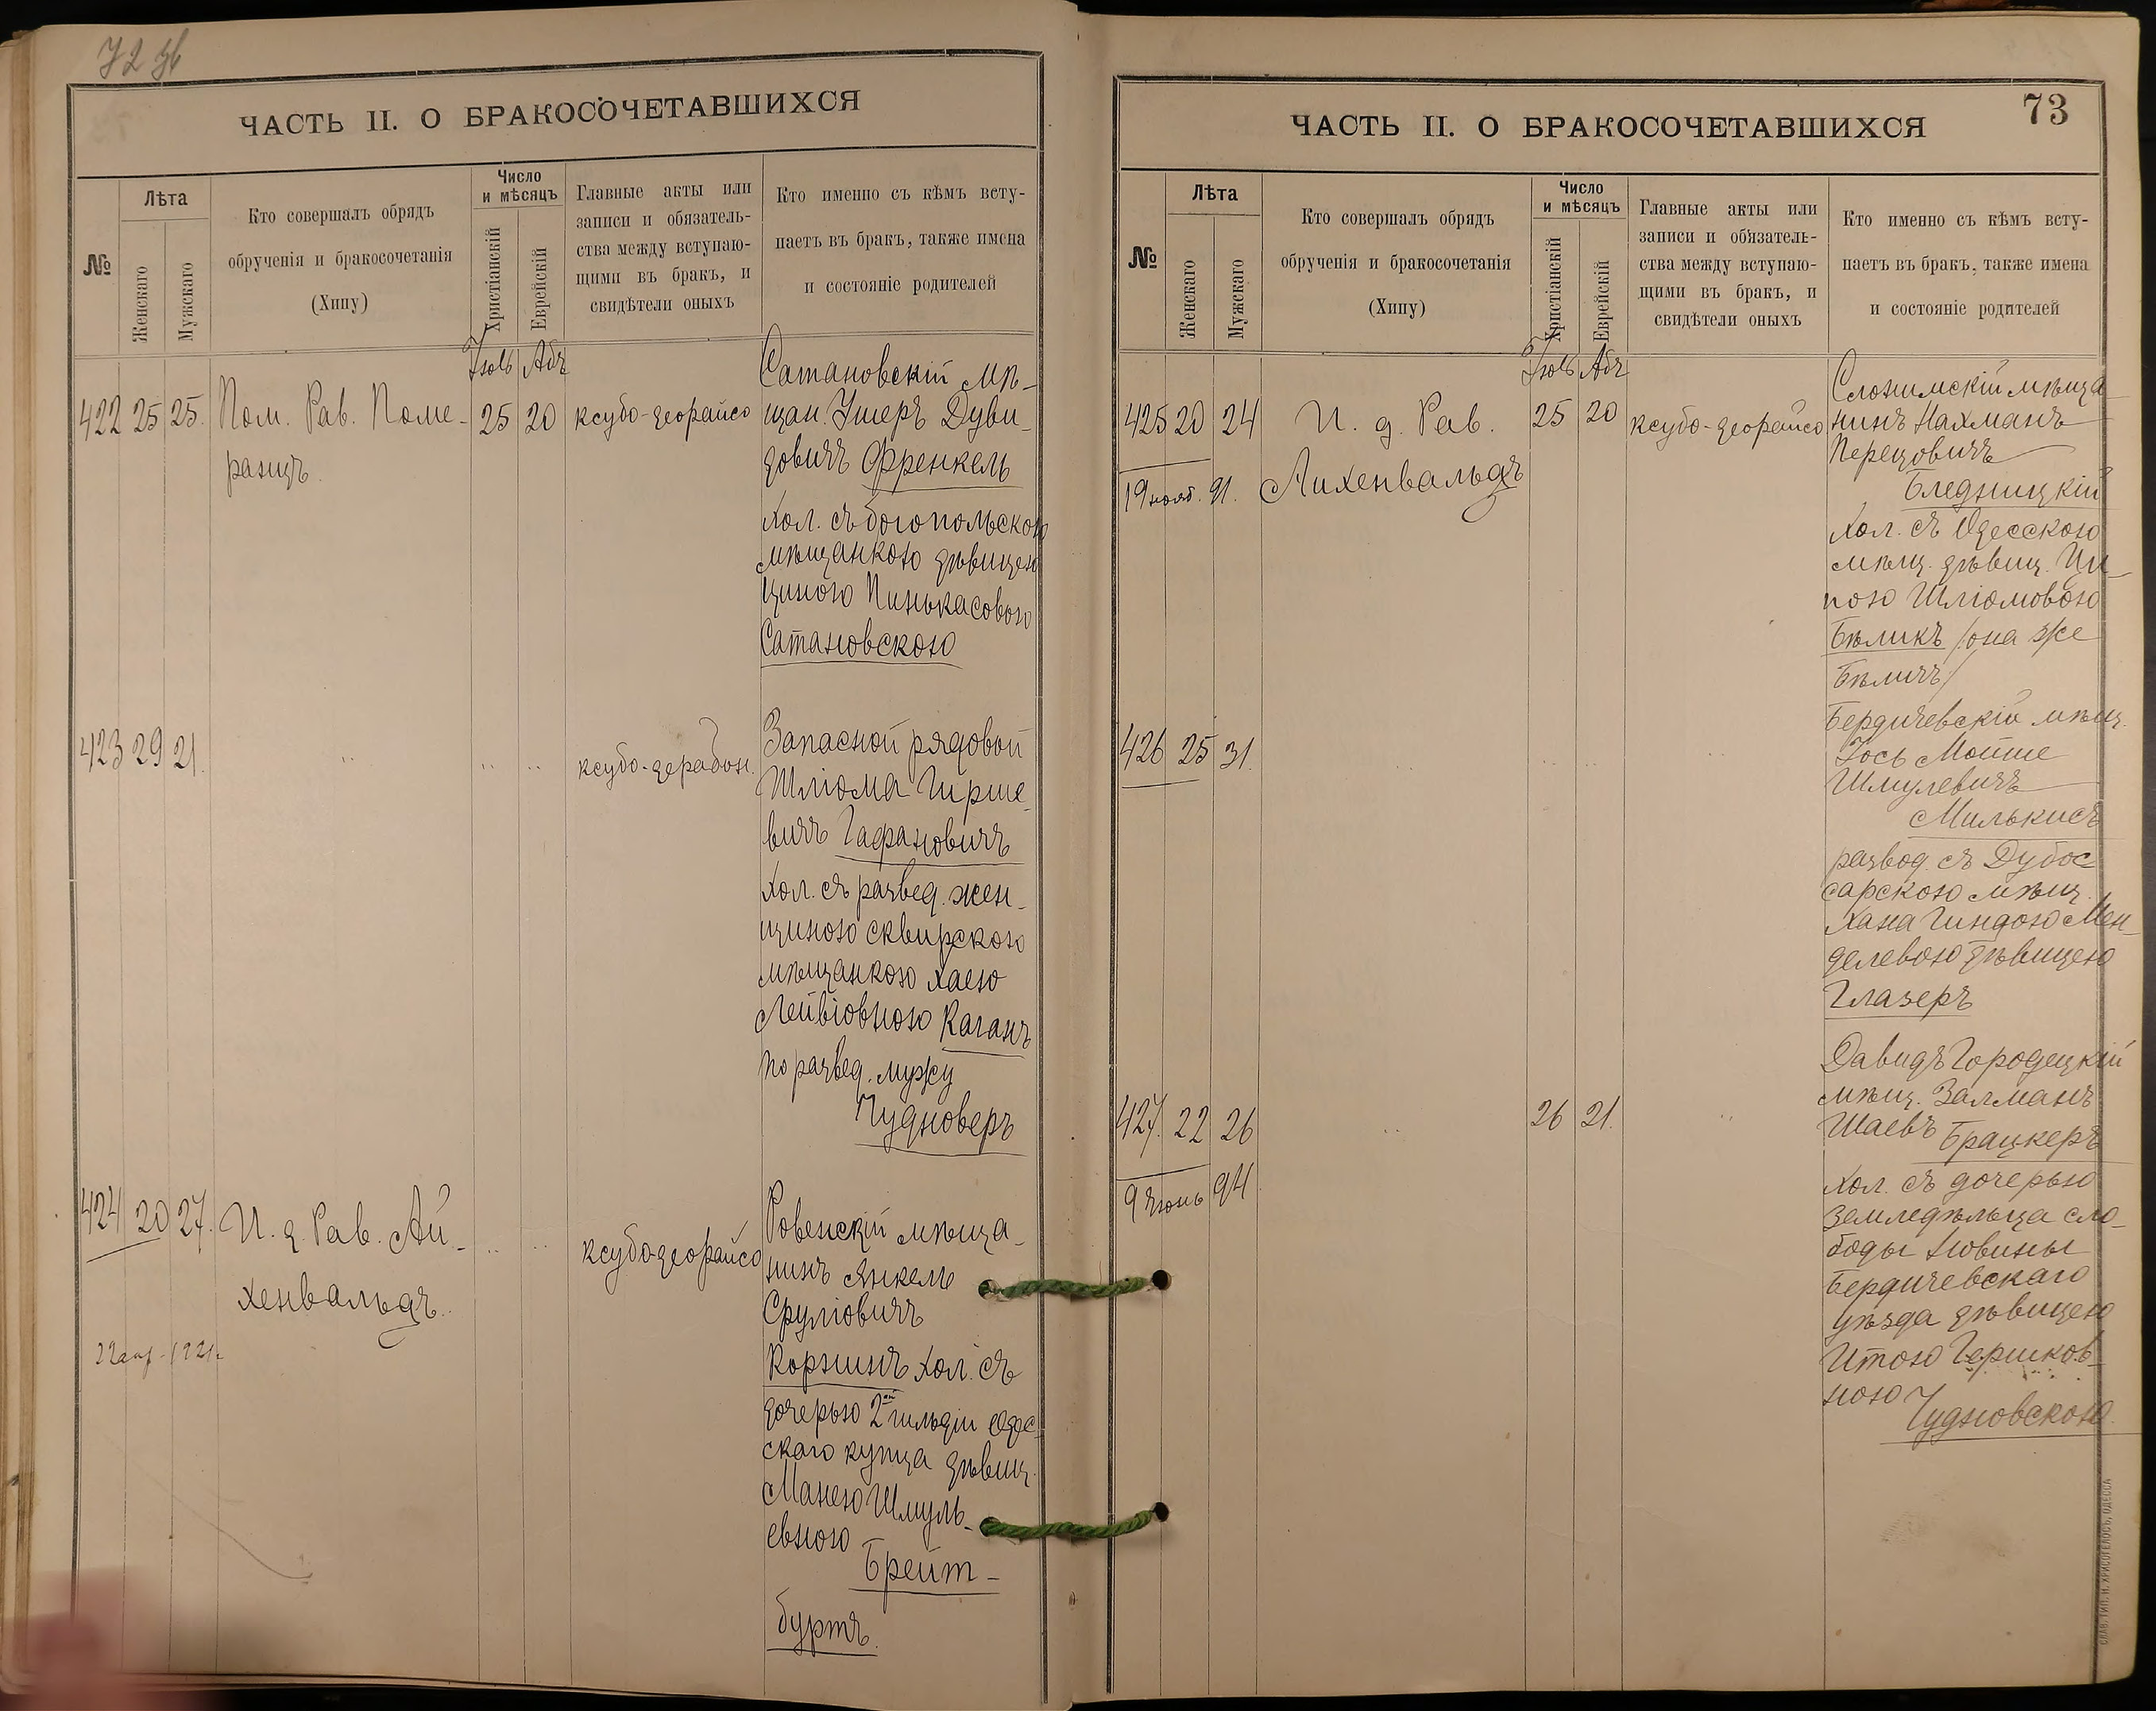 72 об
ЧАСТЬ II. О БРАКОСОЧЕТАВШИХСЯ
№
Лѣта
Женскаго
Мужскаго
Кто совершалъ обрядъ
обрученія и бракосочетанія
(Хипу)
Число
и мѣсяцъ
Христіанскій
Еврейскій
Главные акты или
записи и обязатель-
ства между вступаю-
щими въ бракъ, и
свидѣтели оныхъ
Кто именно съ кѣмъ всту-
паетъ въ бракъ, также имена
и состояніе родителей
Іюль Абъ
422 25 25. Пом. Рав. Поме-
ранцъ.
25 20 ксубо-деорайсо
Сатановскій мѣ-
щан. Ушеръ Дуви-
довичъ Френкель
хол. съ богопольскою
мѣщанкою дѣвицею
Циною Пинькасовою
Сатановскою
423 29 21. " " " ксубо-дерабон.
Запасной рядовой
Шліома Гирше-
вичъ Гафановичъ
хол. съ развед. жен-
щиною сквирскою
мѣщанкою Хаею
Лейвіовною Каганъ
по развед. мужу
Чудноверъ
424 20 27. И. д. Рав. Ай-
хенвальдъ.
" " ксубо деорайсо
22 апр. 1921г.
Ровенскій мѣща-
нинъ Янкель
Сруліовичъ
Коржинъ хол. съ
дочерью 2ой гильдіи Одес-
скаго купца дѣвиц.
Манею Шмуль-
евною
Брейт-
буртъ.
73
ЧАСТЬ II. О БРАКОСОЧЕТАВШИХСЯ
№
Лѣта
Женскаго
Мужскаго
Кто совершалъ обрядъ
обрученія и бракосочетанія
(Хипу)
Число
и мѣсяцъ
Христіанскій
Еврейскій
Главные акты или
записи и обязатель-
ства между вступаю-
щими въ бракъ, и
свидѣтели оныхъ
Кто именно съ кѣмъ всту-
паетъ въ бракъ, также имена
и состояніе родителей
Іюль Абъ
425 20 24 И. д. Рав.
Аихенвальдъ
25 20 ксубо-деорайсо
19 нояб. 91.
Слонимскій мѣща-
нинъ Нахманъ
Перецовичъ
Бледницкій
хол. съ Одесскою
мѣщ. дѣвиц. Ци-
пою Шліомовою
Бѣликъ /она же
Бѣличъ/
426 25 31. " " " "
Бердичевскій мѣщ.
Іось Мойше
Шмулевичъ
Милькисъ
развод. съ Дубос-
сарскою мѣщ.
Хана Гиндою Мен-
делевою дѣвицею
Глазеръ
427. 22 26 " 26 21. "
9 Июнь 94
Давидъ Городецкій
мѣщ. Залманъ
Шаевъ Брацкеръ
хол. съ дочерью
земледѣльца сло-
боды Новины
Бердичевскаго
уѣзда дѣвицею
Итою Гершков-
ною
Чудновскою.
СЛАВ. ТИП. Н. ХРИСОГЕЛОСЪ, ОДЕССА